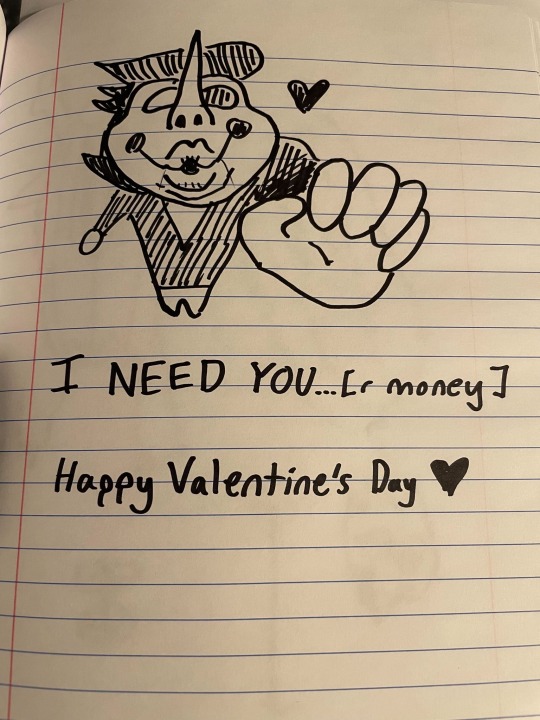 I NEED YOU...[r money]
Happy Valentine's Day ♥